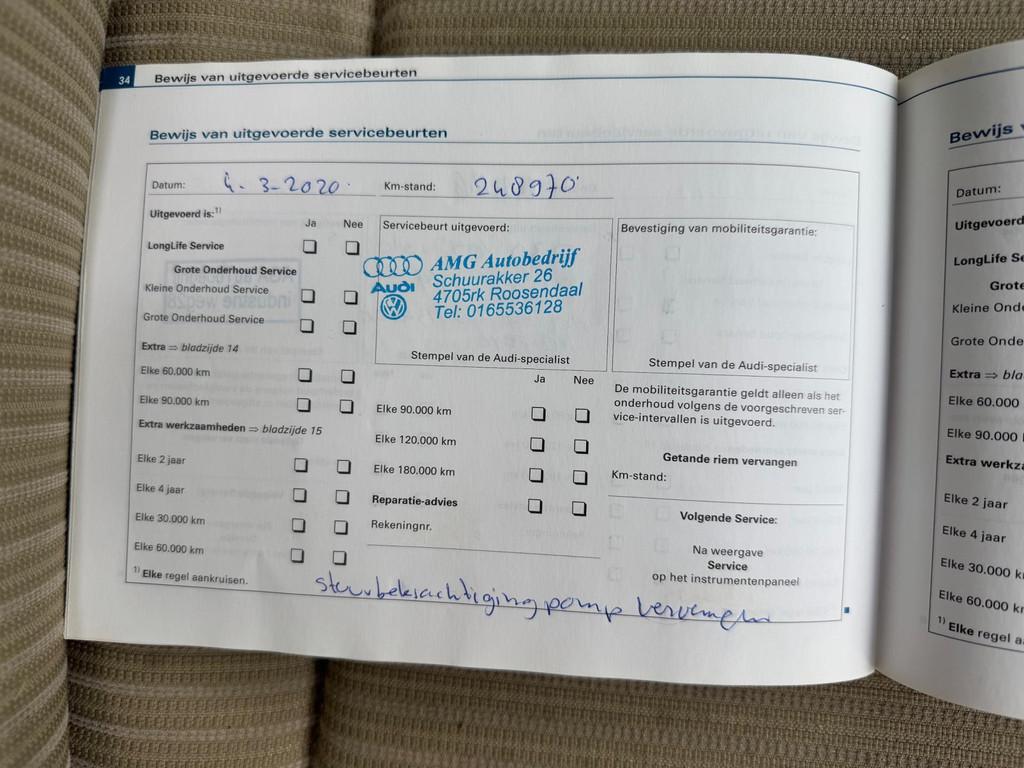 34 Bewijs van uitgevoerde servicebeurten
Bewijs van uitgevoerde servicebeurten
Datum: 4-3-2020 Km-stand: 248970
Uitgevoerd is:1)
Ja Nee
LongLife Service
Grote Onderhoud Service
Kleine Onderhoud Service
Grote Onderhoud Service
Extra ⇒ bladzijde 14
Elke 60.000 km
Elke 90.000 km
Extra werkzaamheden ⇒ bladzijde 15
Elke 2 jaar
Elke 4 jaar
Elke 30.000 km
Elke 60.000 km
1) Elke regel aankruisen.
Servicebeurt uitgevoerd:
AMG Autobedrijf
Audi Schuurakker 26
4705rk Roosendaal
Tel: 0165536128
Stempel van de Audi-specialist
Ja Nee
Elke 90.000 km
Elke 120.000 km
Elke 180.000 km
Reparatie-advies
Rekeningnr.
Bevestiging van mobiliteitsgarantie:
Stempel van de Audi-specialist
De mobiliteitsgarantie geldt alleen als het
onderhoud volgens de voorgeschreven ser-
vice-intervallen is uitgevoerd.
Getande riem vervangen
Km-stand:
Volgende Service:
Na weergave
Service
op het instrumentenpaneel
stuurbekrachtiging pomp
Bewijs
Datum:
Uitgevoerd
LongLife Se
Grote
Kleine Onde
Grote Onde
Extra ⇒ bla
Elke 60.000
Elke 90.000
Extra werkza
Elke 2 jaar
Elke 4 jaar
Elke 30.000 k
Elke 60.000 k
1) Elke regel a